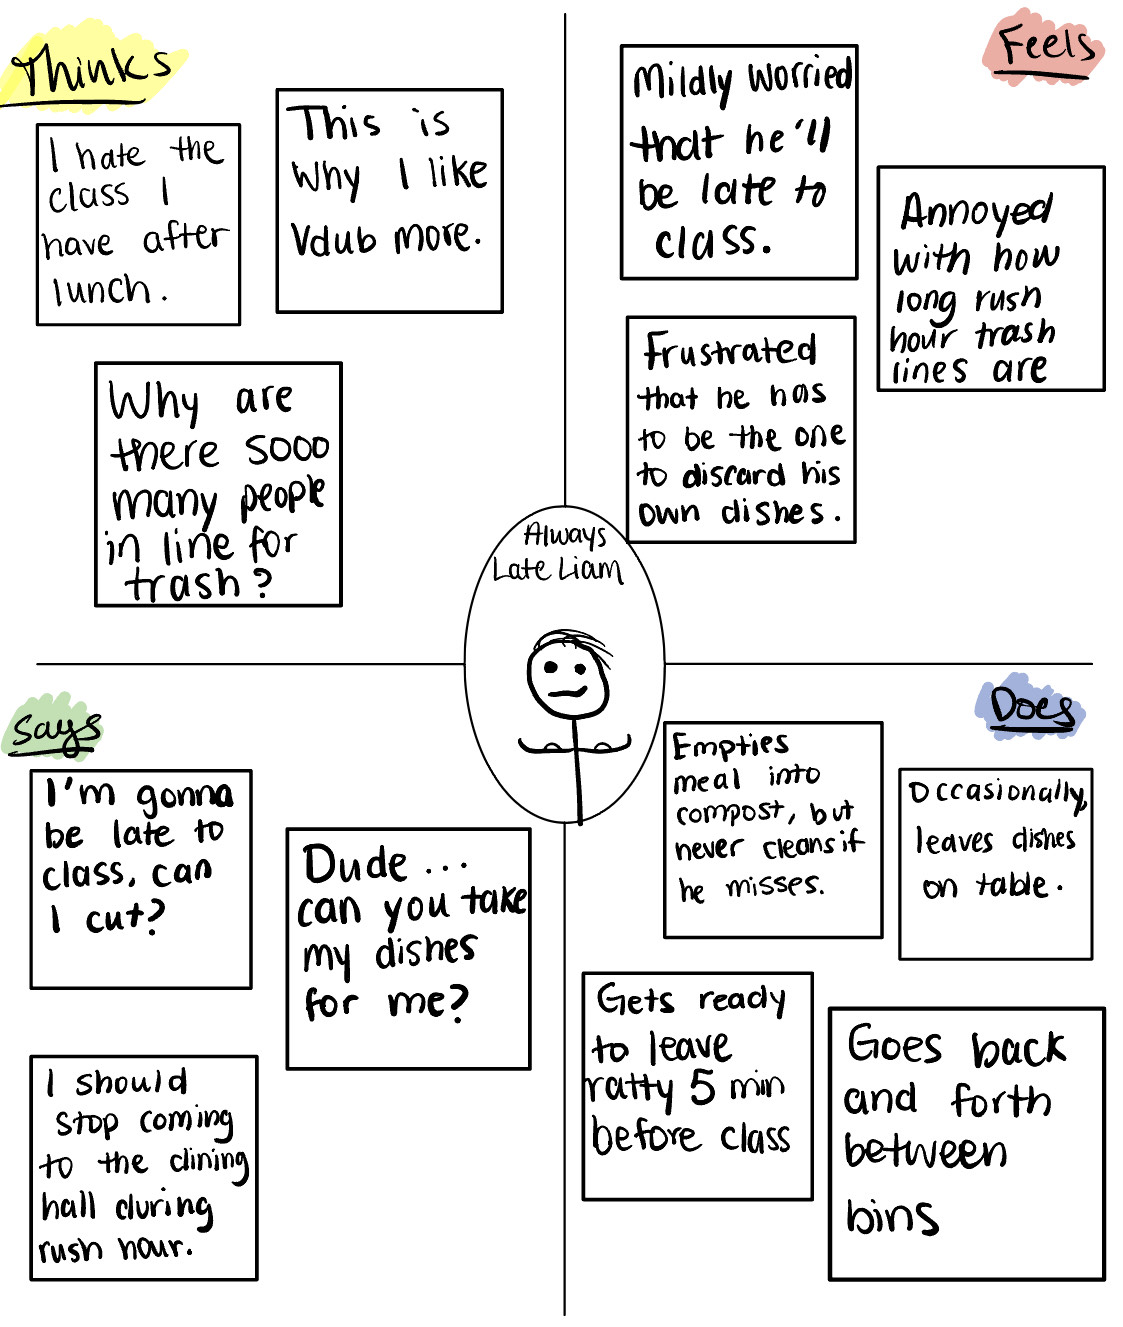 Thinks
I hate the
class I
have after
lunch.
This is
Why I like
Vdub more.
Why are
there sooo
many people
in line for
trash?
Feels
Mildly worried
that he'll
be late to
class.
Annoyed
with how
long rush
hour trash
lines are
Frustrated
that he has
to be the one
to discard his
own dishes.
Always
Late Liam
Says
I'm gonna
be late to
class, can
I cut?
Dude...
can you take
my dishes
for me?
I should
stop coming
to the dining
hall during
rush hour.
Does
Empties
meal into
compost, but
never cleans if
he misses.
Occasionally,
leaves dishes
on table.
Gets ready
to leave
ratty 5 min
before class
Goes back
and forth
between
bins